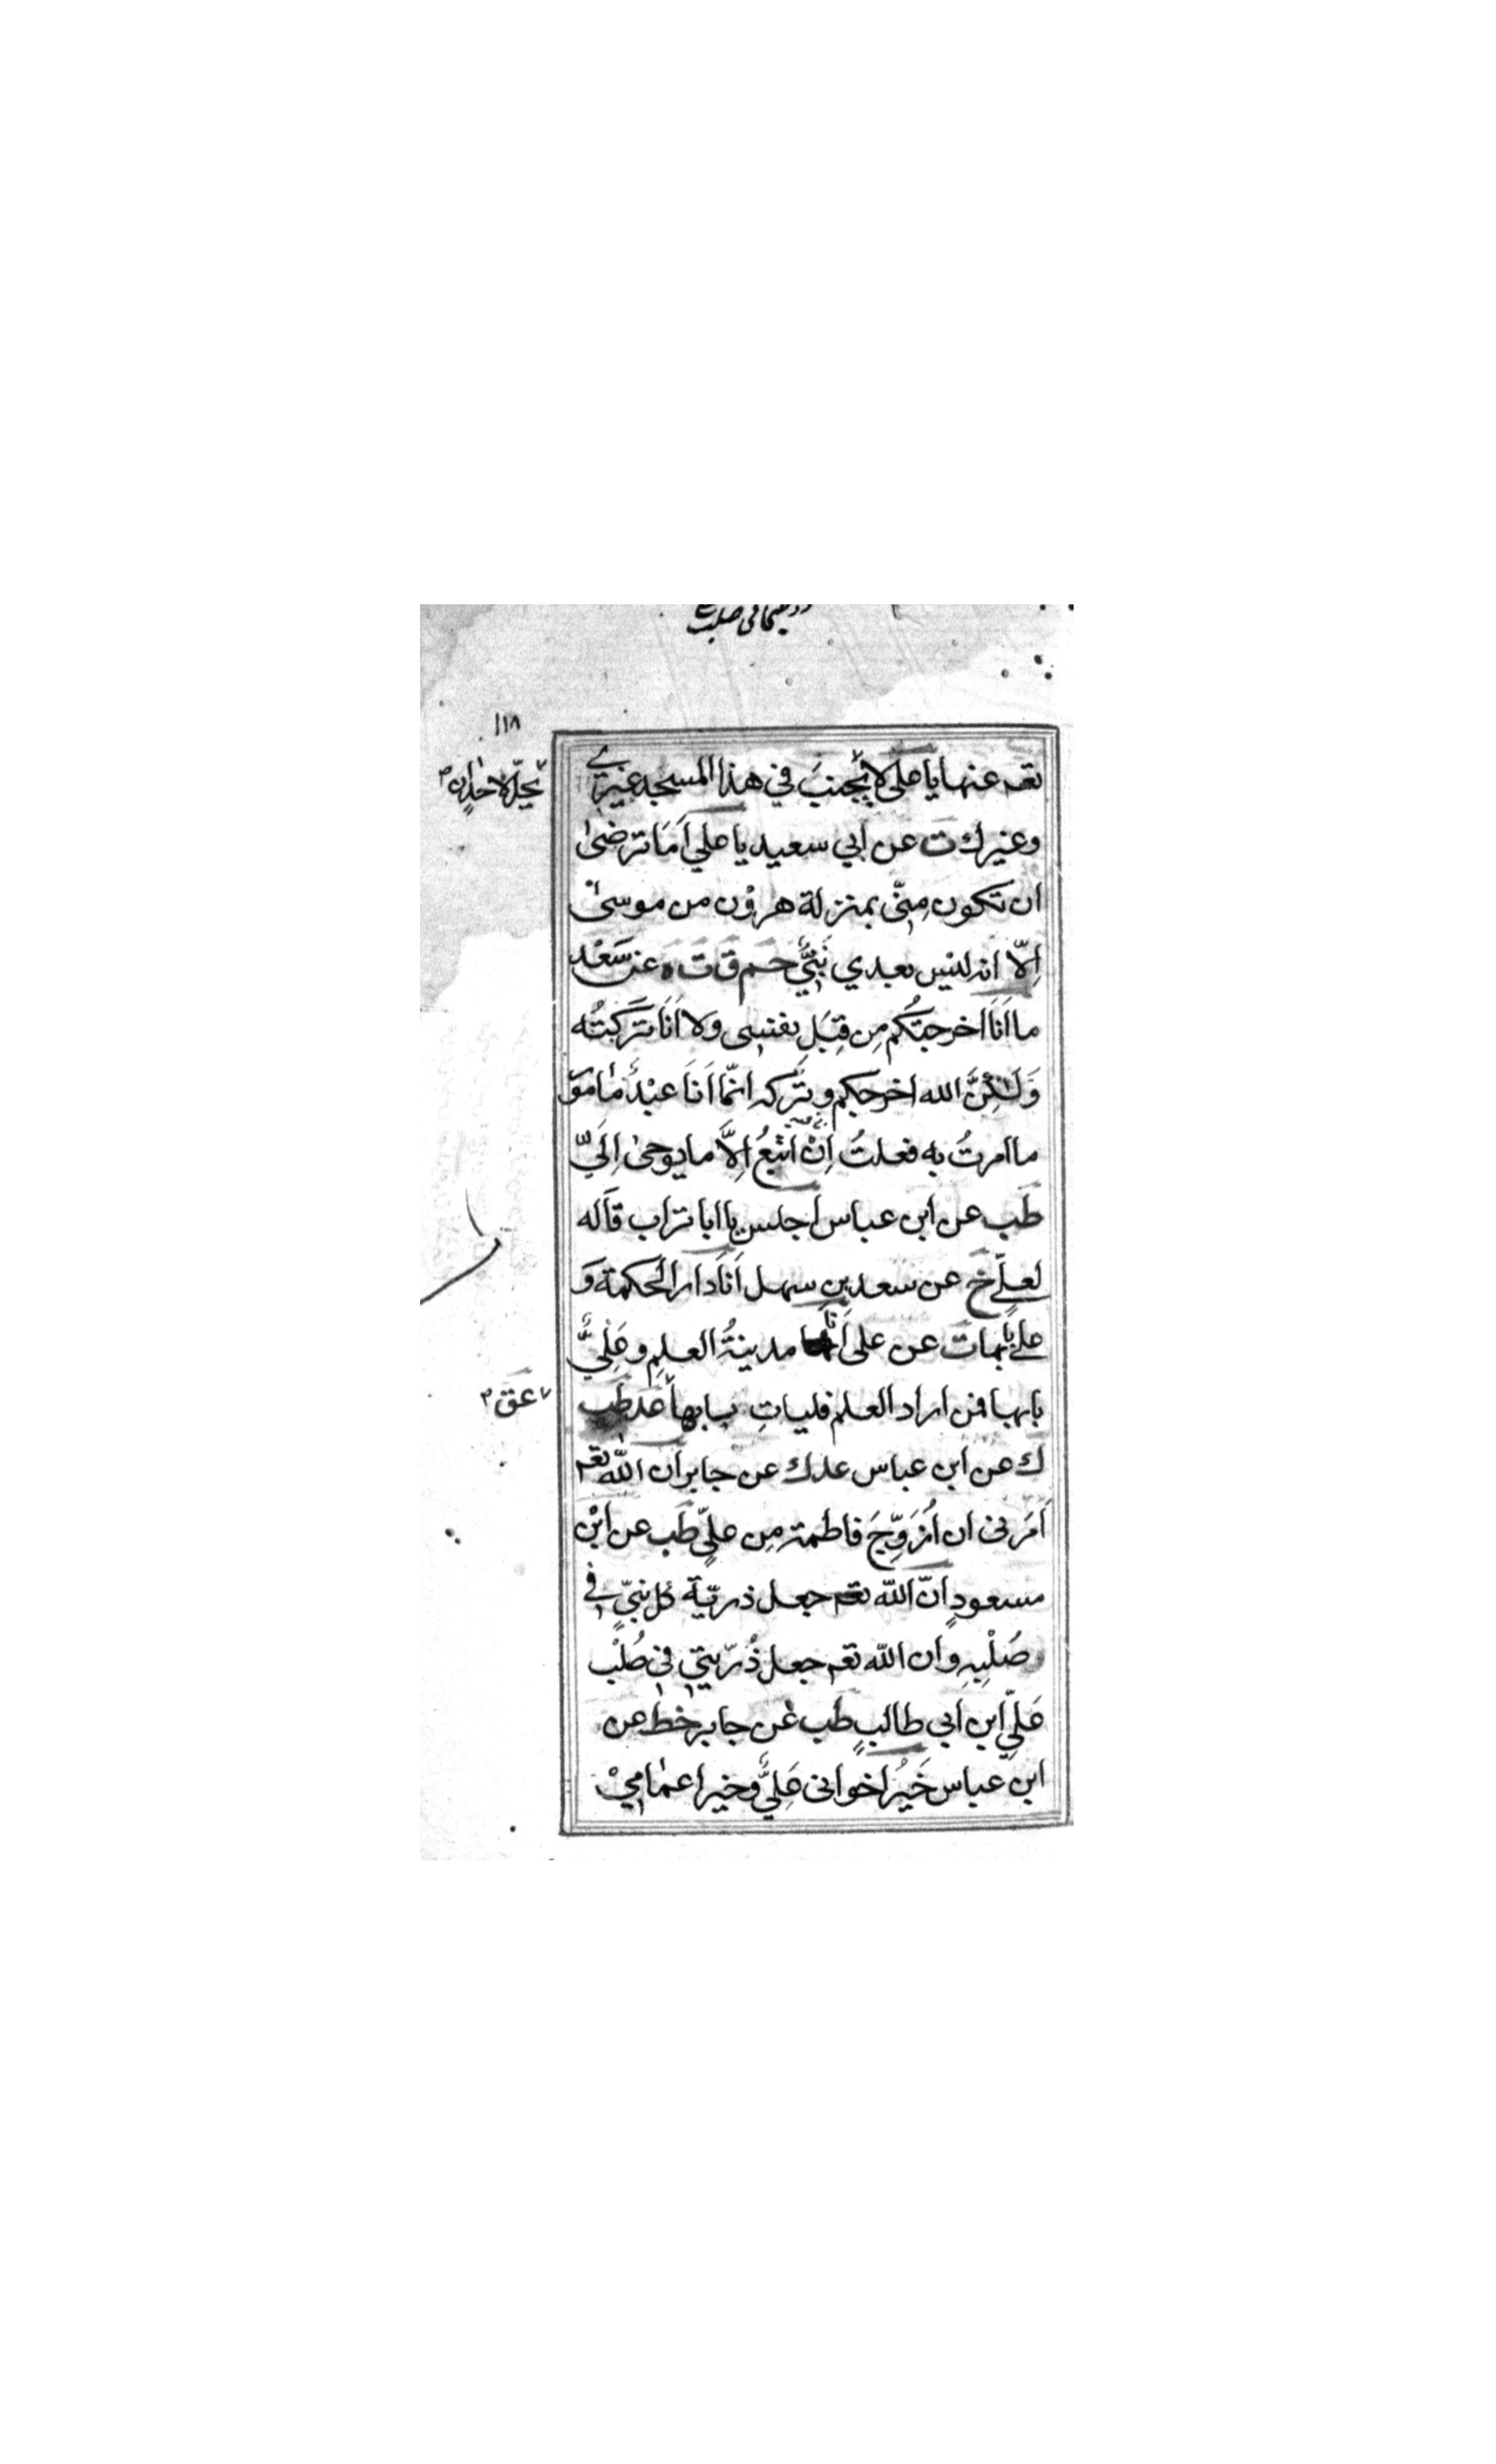 في صلب
١١٨
تعـ عنها يا علي لا يجنبَ في هذا المسجد غيري
يحلّ لاحدٍ ان
وغيرك ت عن ابي سعيد يا علي اَمَا ترضىٰ
ان تكون مِنّي بمنزلة هرٰون من موسىٰ
اِلّا انه ليس بعدي نَبِيٌّ حـم ق ت ه عن سَعْد
ما اَنَا اخرجتُكم مِن قِبَلِ نفسي ولا اَنَا تَرَكتُه
وَلٰكِنَّ الله اخرجكم وتَركه انّما اَنَا عبْدٌ مامو
ما امرتُ به فعلتُ اِنْ اَتّبعُ اِلَّا ما يوحىٰ اِلَيّ
طَب عن ابن عباس اجلس يا ابا تراب قاله
لعليّ خ عن سعد بن سهل اَنَا دار الحكمة وَ
علي بابها ت عن علي اَنَا مدينةُ العلمِ وعَلِيٌّ
بابها فمن اراد العلم فليات بابها عَد طَب
عَق
ك عن ابن عباس عد ك عن جابر ان اللّٰه تعـ
اَمَرني ان اُزَوِّجَ فاطمة مِن عليّ طَب عن ابْن
مسعودٍ انّ اللّٰه تعـ جعل ذريّة كل نبيّ في
صُلْبِهِ وان اللّٰه تعـ جعل ذُرّيتي في صُلْب
عَلِيّ ابن ابي طالبٍ طَب عن جابر خط عن
ابن عباس خَيْرُ اخواني عَلِيٌّ وخير اعمامِيْ